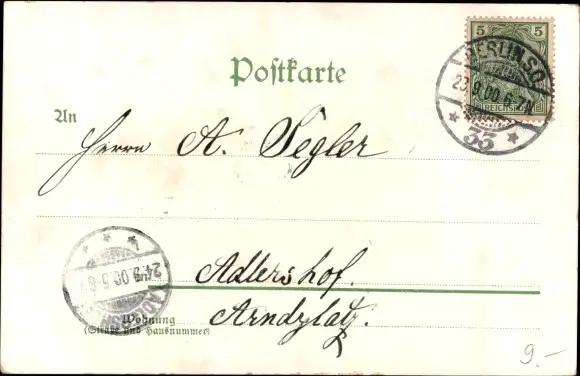 5 5
REICHSPOST
BERLIN S.O.
23.9.00.6-7N
* 33 *
Postkarte
An
Herrn A. Segler
Adlershof.
Arndzlatz.
24.9.00.5-6
Wohnung
(Straße und Hausnummer)
9.-